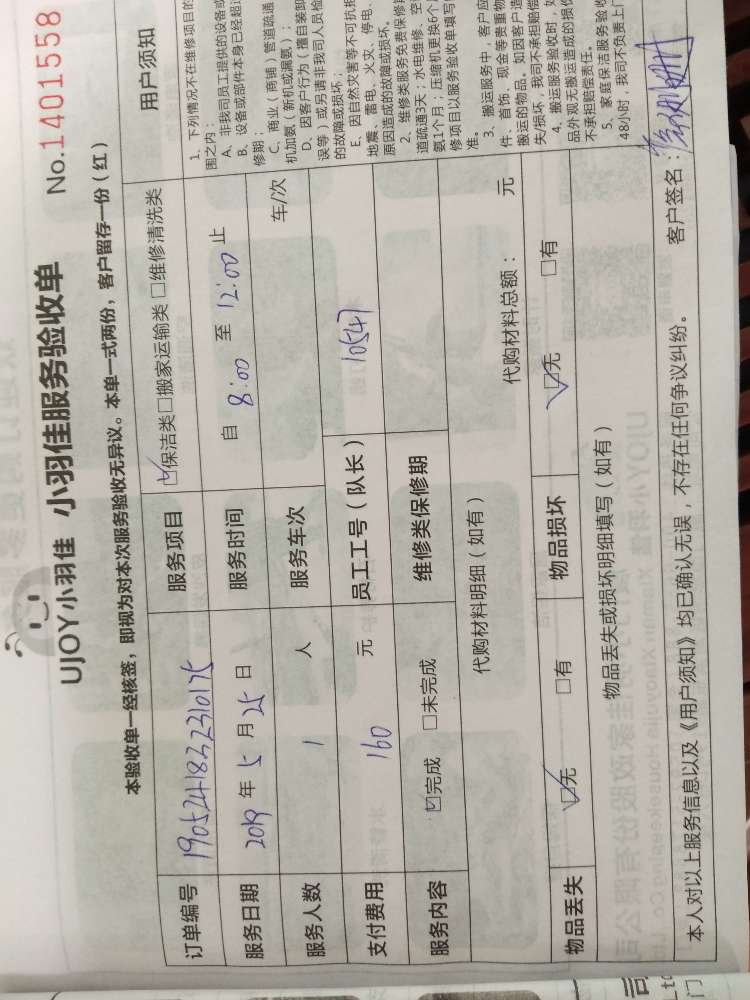 UJOY小羽佳 小羽佳服务验收单 No.1401558
本验收单一经核签，即视为对本次服务验收无异议。本单一式两份，客户留存一份（红）
订单编号 19052418323210175 服务项目 ☑保洁类□搬家运输类 □维修清洗类
服务日期 2019 年 5 月 25 日 服务时间 自 8:00 至 12:00 止
服务人数 1 人 服务车次 车/次
支付费用 160 元 员工工号（队长） 10547
服务内容 ☑完成 □未完成 维修类保修期
代购材料明细（如有） 代购材料总额： 元
物品丢失 ☑无 □有 物品损坏 ☑无 □有
物品丢失或损坏明细填写（如有）
本人对以上服务信息以及《用户须知》均已确认无误，不存在任何争议纠纷。 客户签名：
用户须知
1、下列情况不在维修项目的
围之内：
A、非我司员工提供的设备或
B、设备或部件本身已经超
修期；
C、商业（商铺）管道疏通
机加氨（新机或漏氨）；
D、因客户行为（擅自装卸
误等）或另请非我司人员检
的故障或损坏；
E、因自然灾害等不可抗
地震、雷电、火灾、停电、
原因造成的故障或损坏。
2、维修类服务免费保修期
道疏通3天；水电维修、空
氨1个月；压缩机更换6个
修项目以服务验收单填写
准。
3、搬运服务中，客户应
件、首饰、现金等贵重物
搬运的物品。如因客户造
失/损坏，我司不承担赔偿
4、搬运服务验收时，如
品外观无搬运造成的损
不承担赔偿责任。
5、家庭保洁服务验收
48小时，我司不负责上门